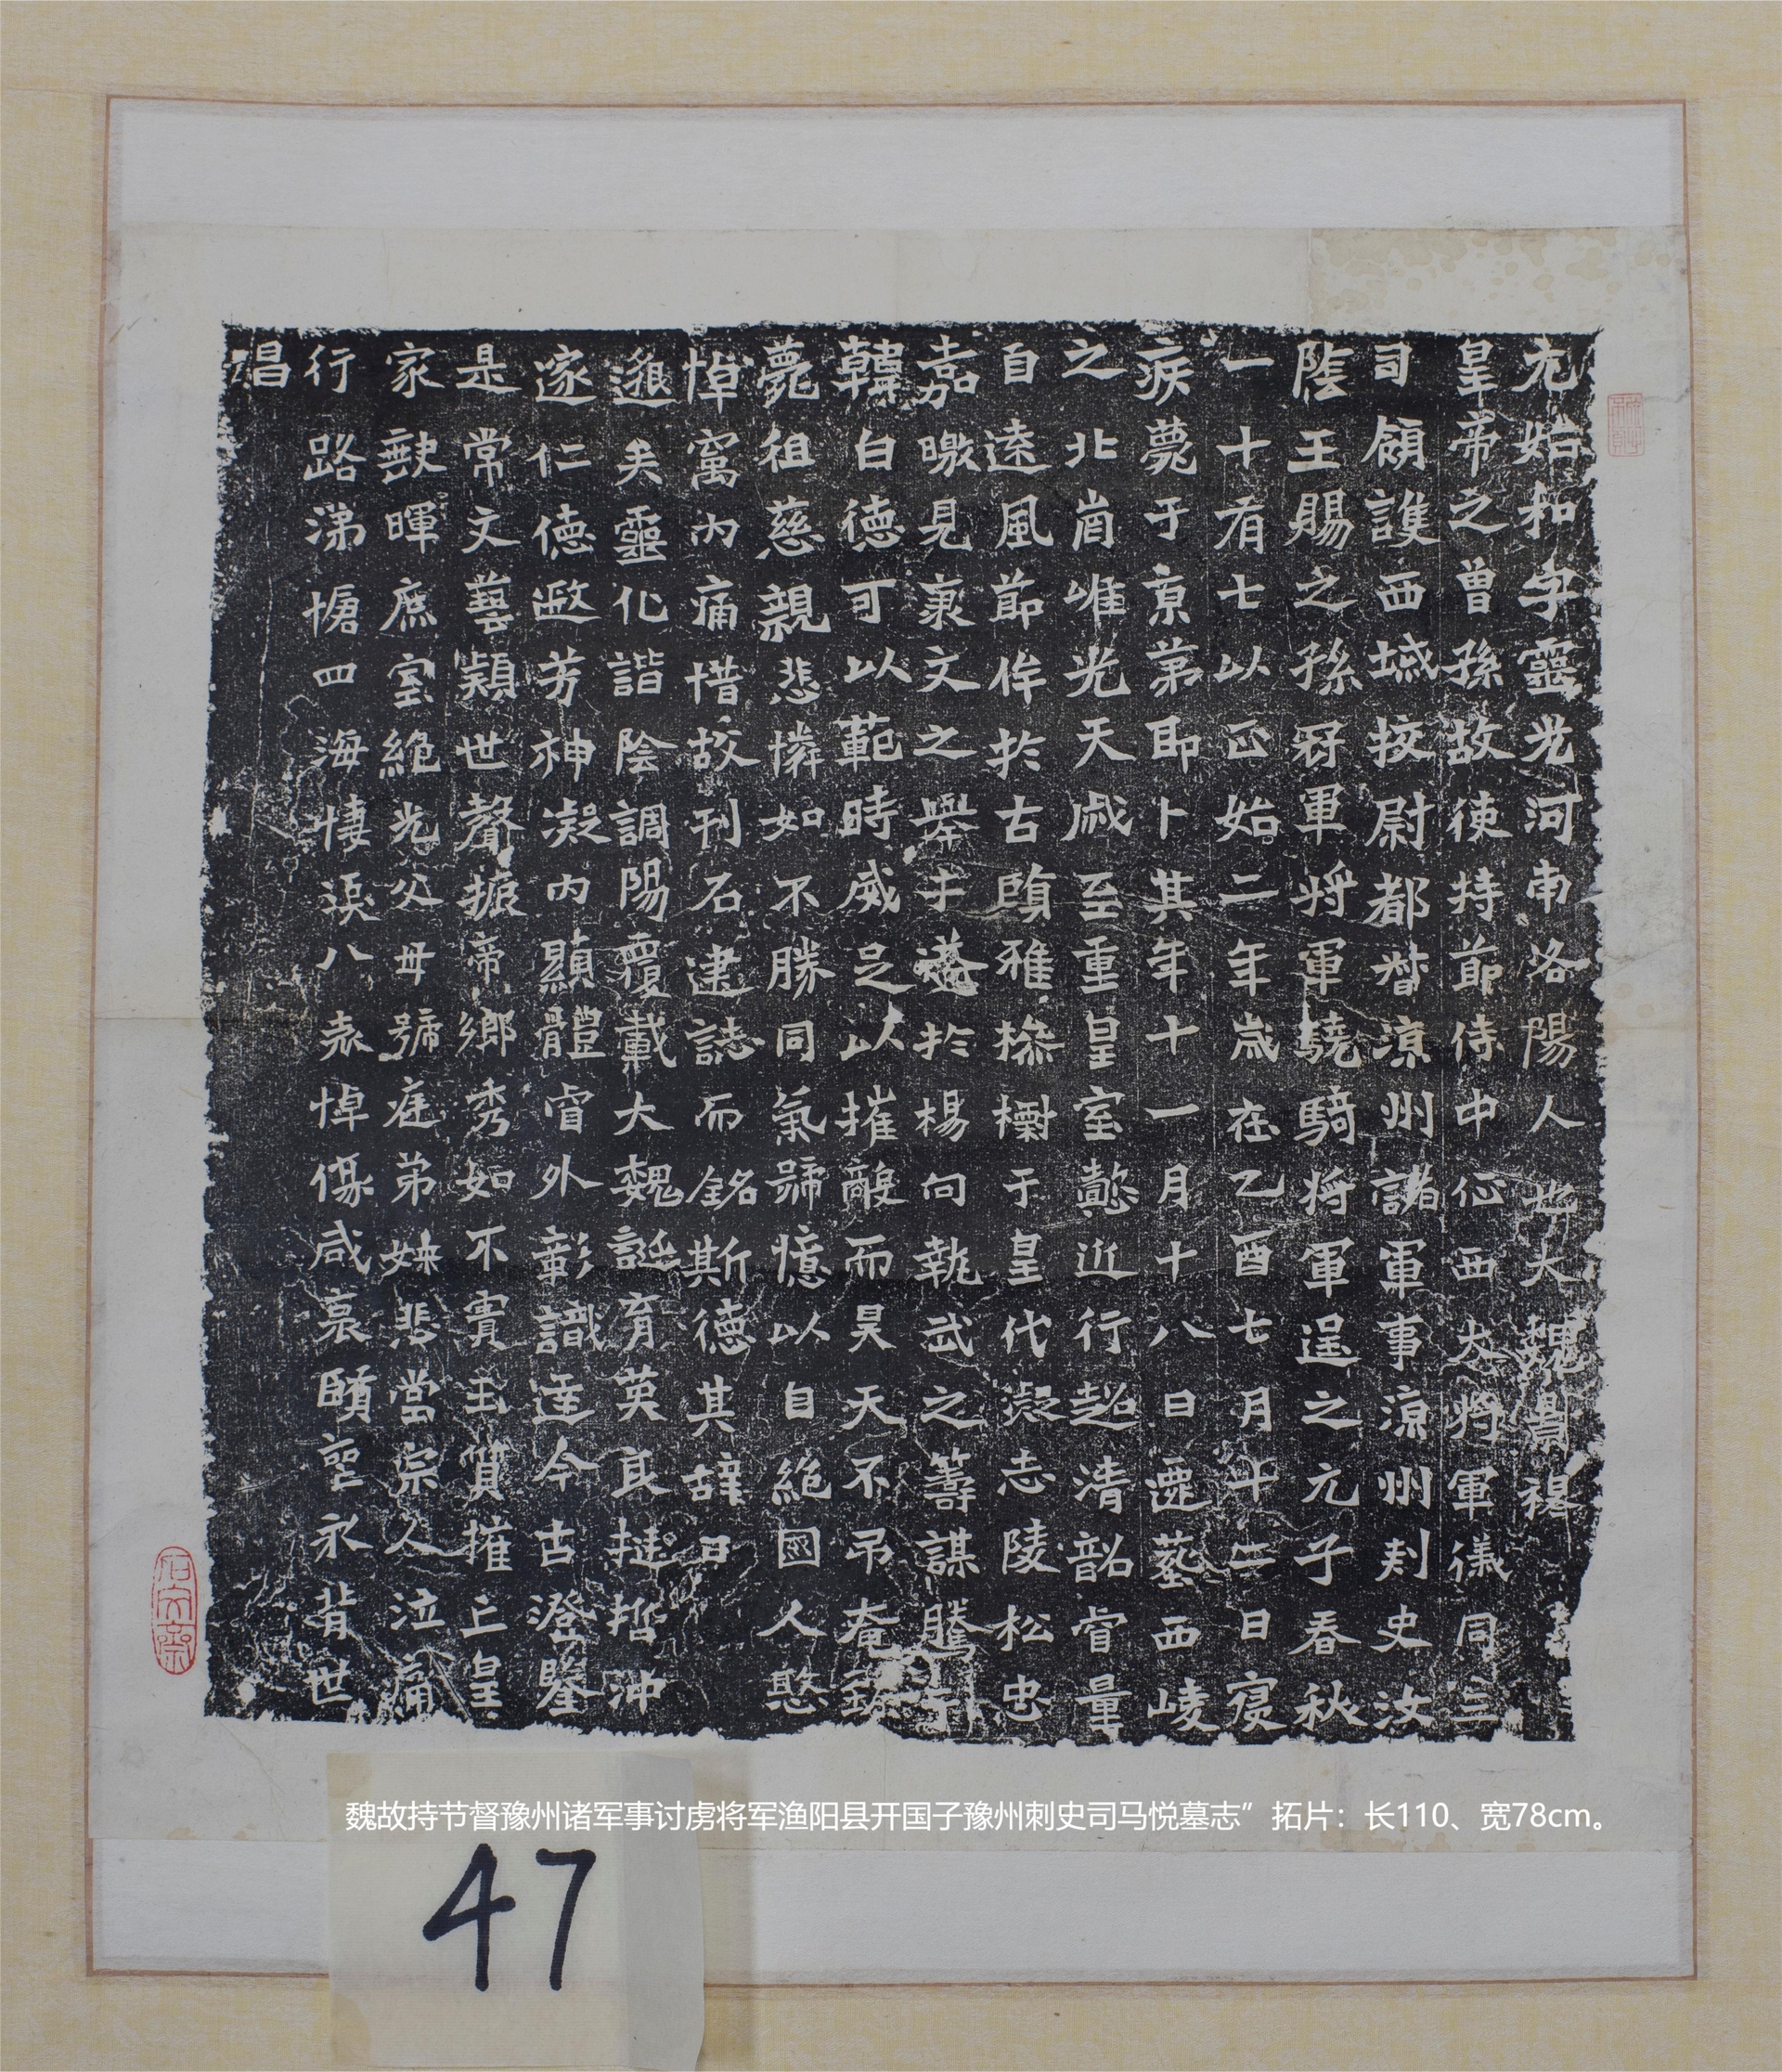 元始和字靈光河南洛陽人也大魏景穆
皇帝之曾孫故使持節侍中征西大將軍儀同三
司領護西域挍尉都督涼州諸軍事涼州刺史汝
陰王賜之孫冠軍將軍驍騎將軍逞之元子春秋
一十有七以正始二年歲在乙酉七月十二日寢
疾薨于京第即卜其年十一月十八日遷塟西崚
之北崗唯光天戚至重皇室懿近行超清韶睿量
自遠風節侔於古賾雅操櫛于皇代凝志陵松忠
嘉暾見衷文之舉于□於楊句執武之籌謀騰于
韓白德可以範時威足以摧敵而昊天不弔奄□
薨祖慈親悲憐如不勝同氣號憶以自絕國人愍
悼寓內痛惜故刊石建誌而銘斯德其辭曰
邈矣靈化諧陰調陽覆載大魏誕育英良挺哲沖
邃仁德遊芳神凝內顯體睿外彰識達今古澄鑒
是常文藝穎世聲振帝鄉秀如不實玉質摧亡皇
家獸暉庶室絕光父母號庭弟妹悲當宗人泣痛
行路涕愴四海悽淚八表悼傷咸哀賾聖永背世
昌
魏故持节督豫州诸军事讨虏将军渔阳县开国子豫州刺史司马悦墓志”拓片：长110、宽78cm。
47